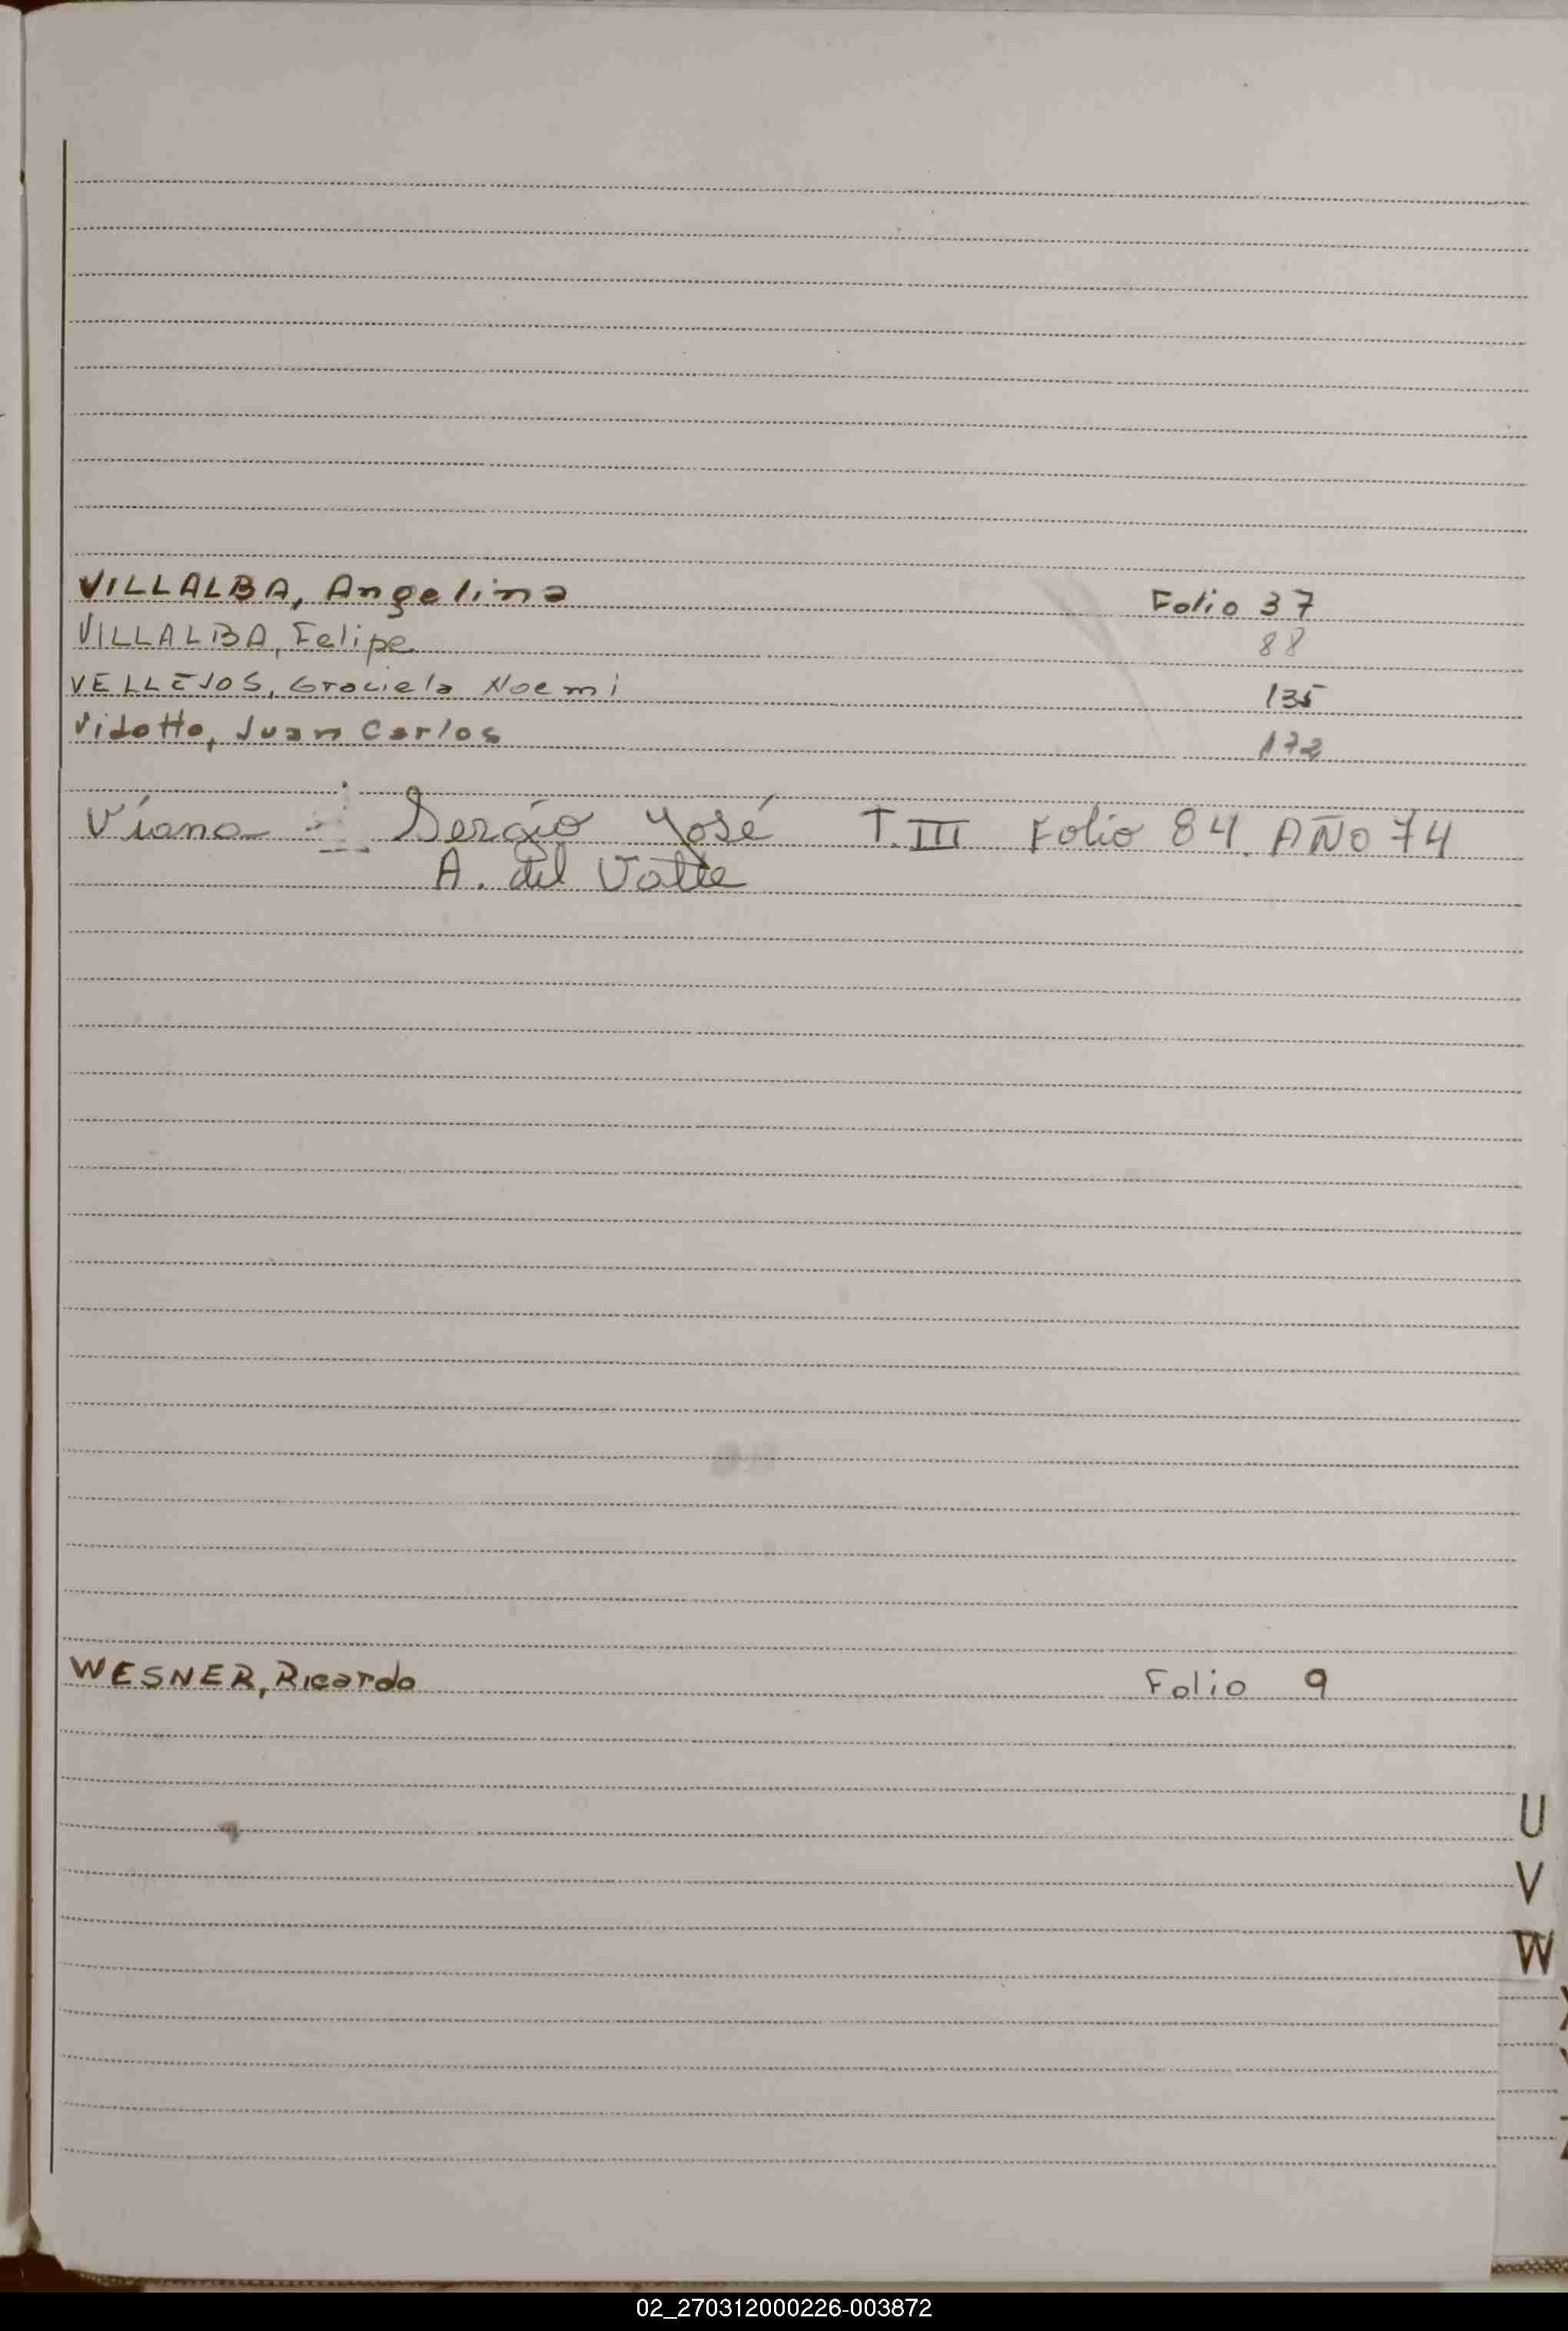 VILLALBA, Angelina Folio 37
VILLALBA, Felipe 88
VELLEJOS, Graciela Noemi 135
Vidotto, Juan Carlos 172
Viana Sergio José T. III Folio 84. AÑO 74
A. del Valle
WESNER, Ricardo Folio 9
U
V
W
02_270312000226-003872